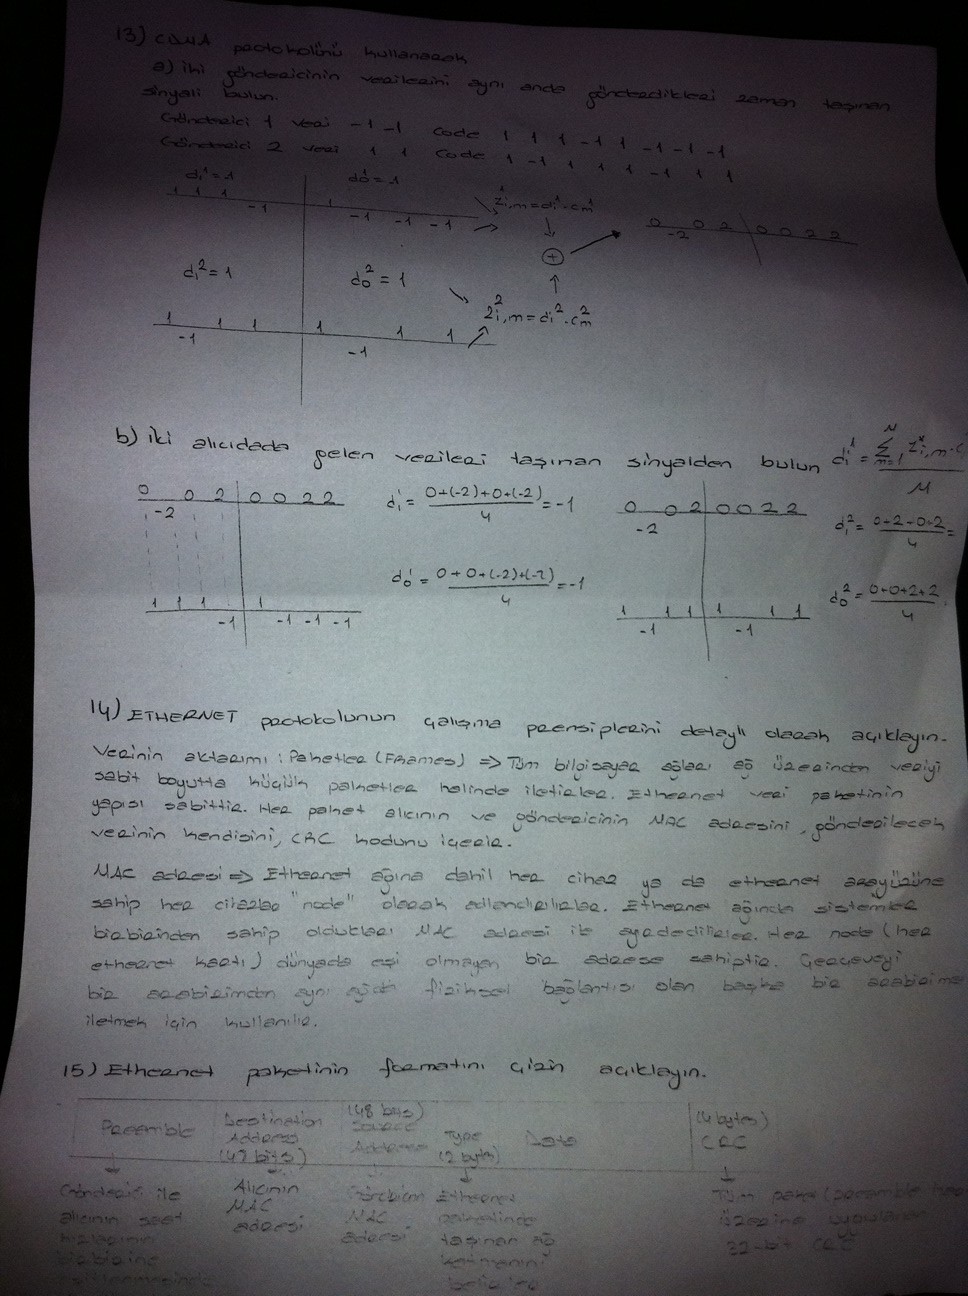 13) CDMA protokolünü kullanarak
a) iki göndericinin verilerini aynı anda gönderdikleri zaman taşınan
sinyali bulun.
Gönderici 1 veri -1 -1 Code 1 1 1 -1 1 -1 -1 -1
Gönderici 2 veri 1 1 Code 1 -1 1 1 1 -1 1 1
d₁¹=1 d₀¹=1
1 1 1 -1 1 -1 -1 -1
Z¹i,m=di¹.cm¹
0 -2 0 2 0 0 2 2
+
d₁²=1 d₀²=1
Z²i,m=di².cm²
1 -1 1 1 1 -1 1 1
b) iki alıcıdada gelen verileri taşınan sinyalden bulun
di¹ = N Σ m=1 Z*i,m.c
M
0 -2 0 2 0 0 2 2
d₁¹ = 0+(-2)+0+(-2) / 4 = -1
0 -2 0 2 0 0 2 2
d₁² = 0+2+0+2 / 4 =
d₀¹ = 0+0+(-2)+(-2) / 4 = -1
d₀² = 0+0+2+2 / 4
1 1 1 -1 1 -1 -1 -1
1 -1 1 1 1 -1 1 1
14) ETHERNET protokolunun çalışma prensiplerini detaylı olarak açıklayın.
Verinin aktarımı : Paketler (Frames) => Tüm bilgisayar ağları ağ üzerinden veriyi
sabit boyutta küçük paketler halinde iletirler. Ethernet veri paketinin
yapısı sabittir. Her paket alıcının ve göndericinin MAC adresini, gönderilecek
verinin kendisini, CRC kodunu içerir.
MAC adresi => Ethernet ağına dahil her cihaz ya da ethernet arayüzüne
sahip her cihazlar "node" olarak adlandırılırlar. Ethernet ağında sistemler
birbirinden sahip oldukları MAC adresi ile ayrdedilirler. Her node (her
ethernet kartı) dünyada eşi olmayan bir adrese sahiptir. Çerçeveyi
bir arabirimden aynı ağda fiziksel bağlantısı olan başka bir arabirime
iletmek için kullanılır.
15) Ethernet paketinin formatını çizin açıklayın.
Preamble
Destination
Address
(48 bits)
(48 bits)
Source
Address
Type
(2 bytes)
Data
(4 bytes)
CRC
Gönderici ile
alıcının saat
hızlarının
birbirine
Alıcının
MAC
adresi
Göndericinin
MAC
adresi
Ethernet
paketinde
taşınan ağ
katmanını
belirler
Tüm paket (preamble hariç
üzerine uygulanan
32-bit CRC